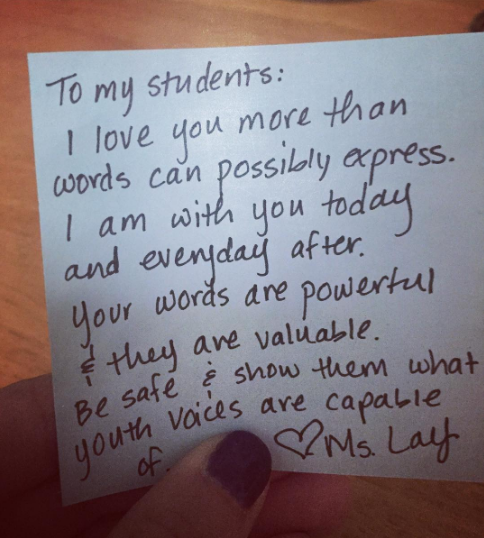 To my students:
I love you more than
words can possibly express.
I am with you today
and everyday after.
Your words are powerful
& they are valuable.
Be safe & show them what
youth voices are capable
of. ♡Ms. Lay